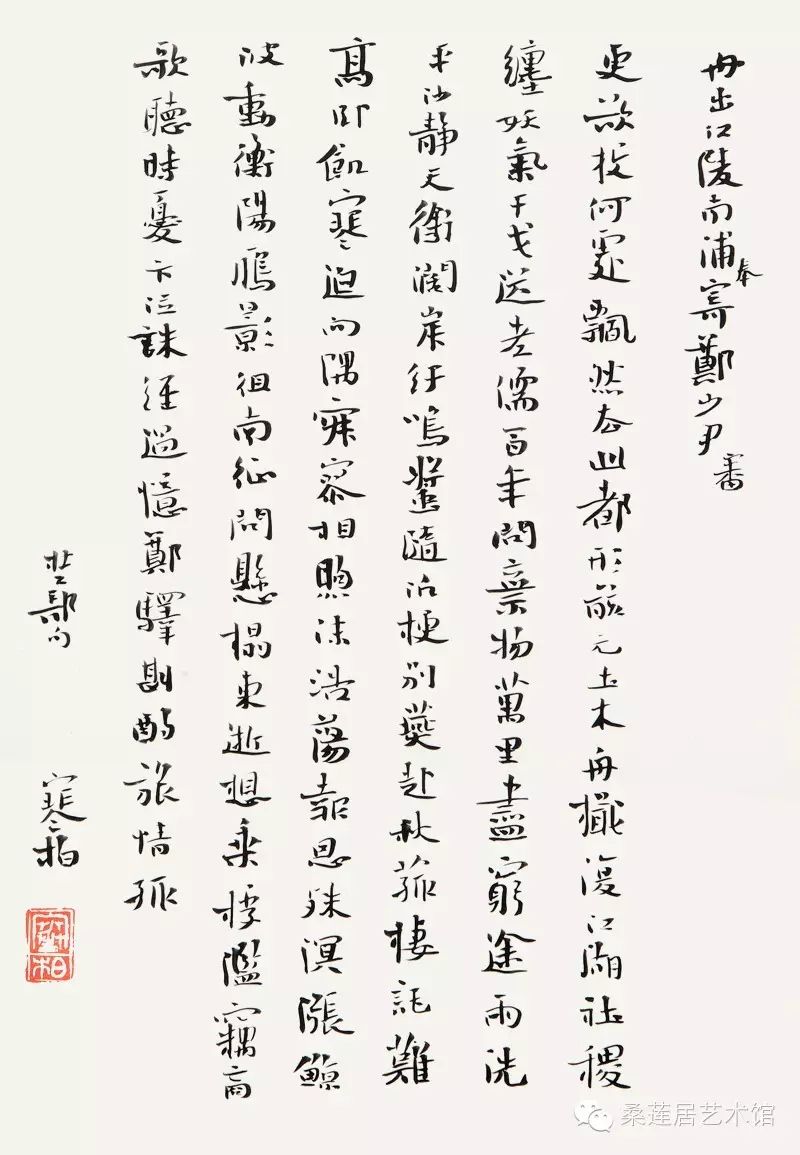 舟出江陵南浦奉寄鄭少尹審
更欲投何處飄然去此都形骸元土木舟檝復江湖社稷
纏妖氣干戈送老儒百年問棄物萬里盡窮途雨洗
平沙靜天衡闊岸紆嗚螿隨泛梗別燕赴秋菰棲託難
高卧飢寒迫向隅寂寥相喣沫浩蕩報恩殊溟漲鯨
波動衡陽鴈影徂南征問懸榻東逝想乘桴濫竊商
歌聽時憂卞泣誅經過憶鄭驛斟酌旅情孤
杜工部句 寒柏
桑莲居艺术馆